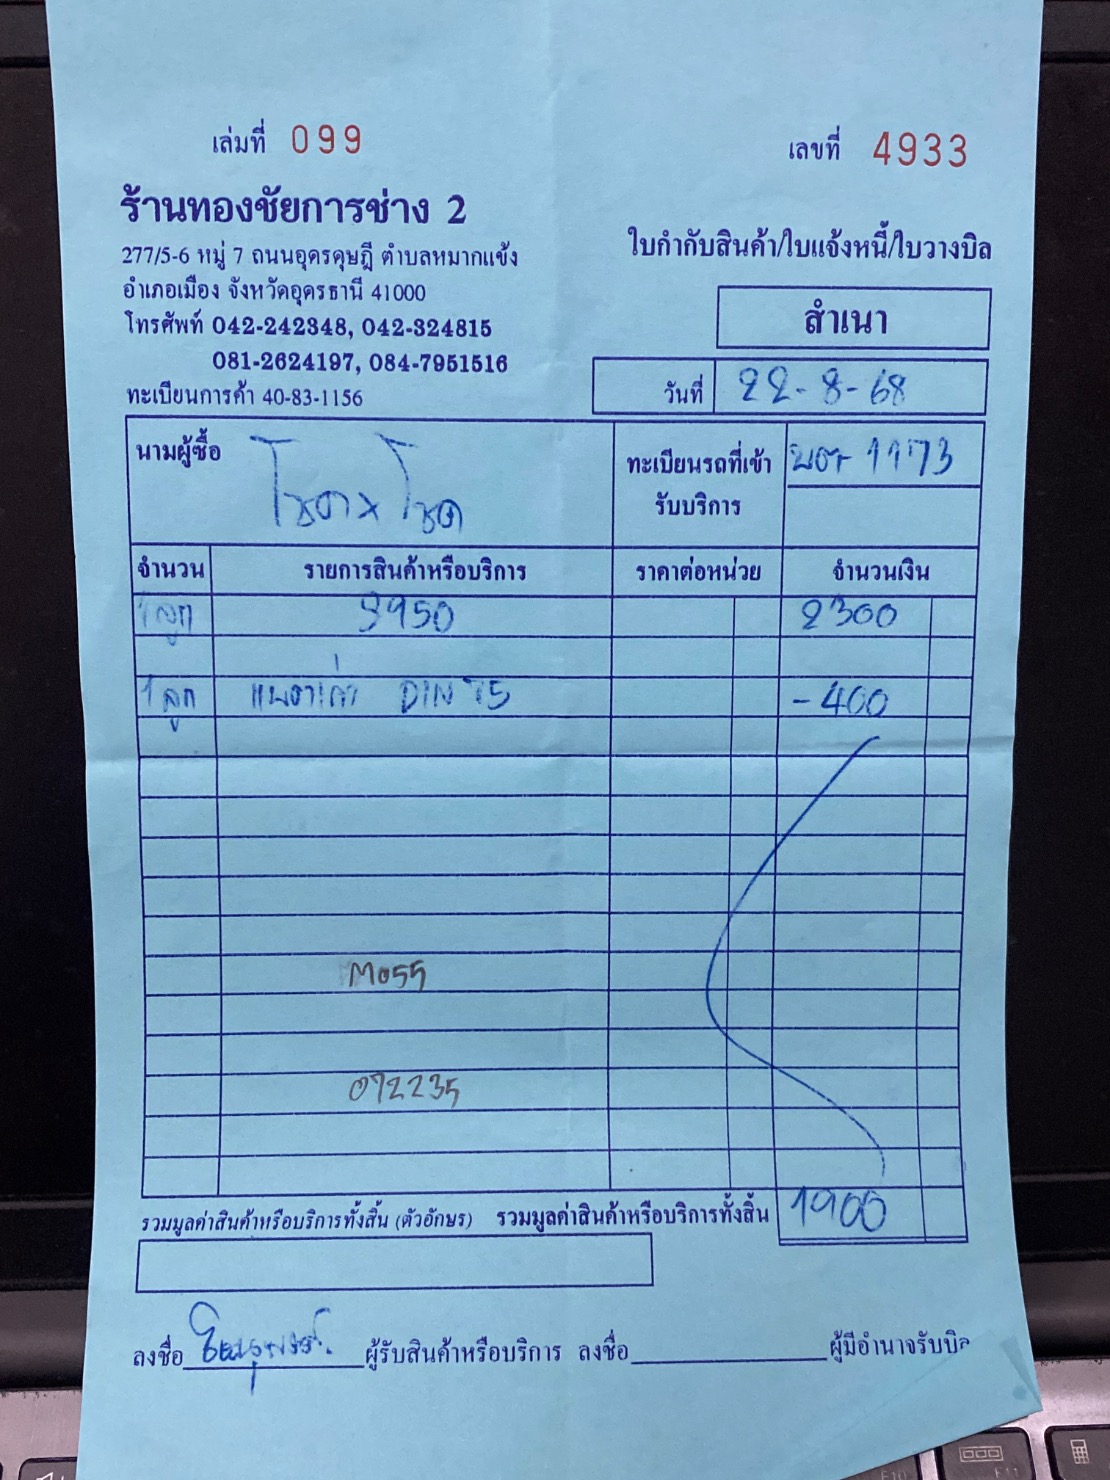 เล่มที่ 099
เลขที่ 4933
ร้านทองชัยการช่าง 2
277/5-6 หมู่ 7 ถนนอุดรดุษฎี ตำบลหมากแข้ง
อำเภอเมือง จังหวัดอุดรธานี 41000
โทรศัพท์ 042-242348, 042-324815
081-2624197, 084-7951516
ทะเบียนการค้า 40-83-1156
ใบกำกับสินค้า/ใบแจ้งหนี้/ใบวางบิล
สำเนา
วันที่ 22-8-68
นามผู้ซื้อ
ทะเบียนรถที่เข้า 1173
รับบริการ
จำนวน รายการสินค้าหรือบริการ ราคาต่อหน่วย จำนวนเงิน
1 ลูก 3950 2300
1 ลูก แบตเก่า DIN 75 -400
M055
072235
รวมมูลค่าสินค้าหรือบริการทั้งสิ้น (ตัวอักษร) รวมมูลค่าสินค้าหรือบริการทั้งสิ้น 1900
ลงชื่อ ผู้รับสินค้าหรือบริการ ลงชื่อ ผู้มีอำนาจรับบิล